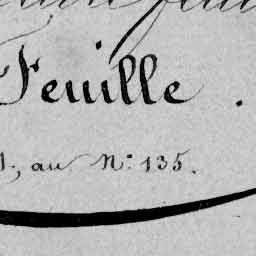 Feuille.
au N° 135.